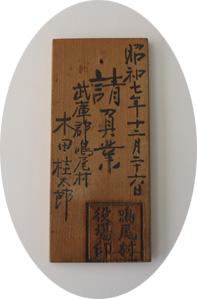 昭和七年十二月二十六日
請負業
武庫郡鳴尾村
木田桂太郎
鳴尾村
役場印